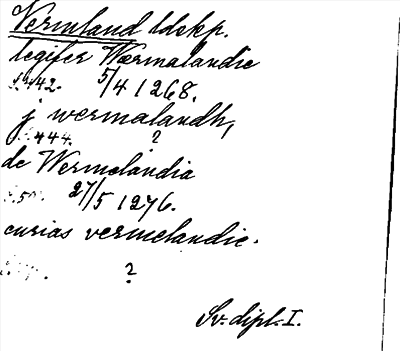 Vermland ldskp.
legifer Wærmalandie
s. 442. 5/4 1268.
j wermalandh,
s. 444. ?
de Wermelandia
27/5 1276.
curias vermelandie.
?
Sv. dipl. I.